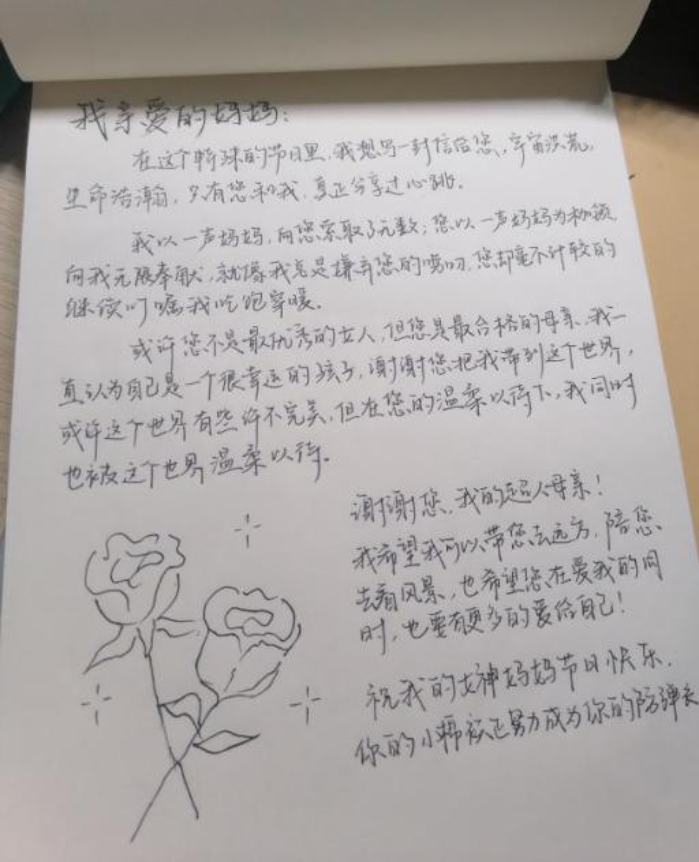 我亲爱的妈妈：
在这个特殊的节日里，我想写一封信给您，宇宙洪荒，
生命浩瀚，只有您和我，真正分享过心跳。
我以一声妈妈，向您索取了无数；您以一声妈妈为枷锁
向我无限奉献，就像我总是嫌弃您的唠叨，您却毫不计较的
继续叮嘱我吃饱穿暖。
或许您不是最优秀的女人，但您是最合格的母亲，我一
直认为自己是一个很幸运的孩子，谢谢您把我带到这个世界，
或许这个世界有些许不完美，但在您的温柔以待下，我同时
也被这个世界温柔以待。
谢谢您，我的超人母亲！
我希望我可以带您去远方，陪您
去看风景，也希望您在爱我的同
时，也要有更多的爱给自己！
祝我的女神妈妈节日快乐，
你的小棉袄正努力成为你的防弹衣